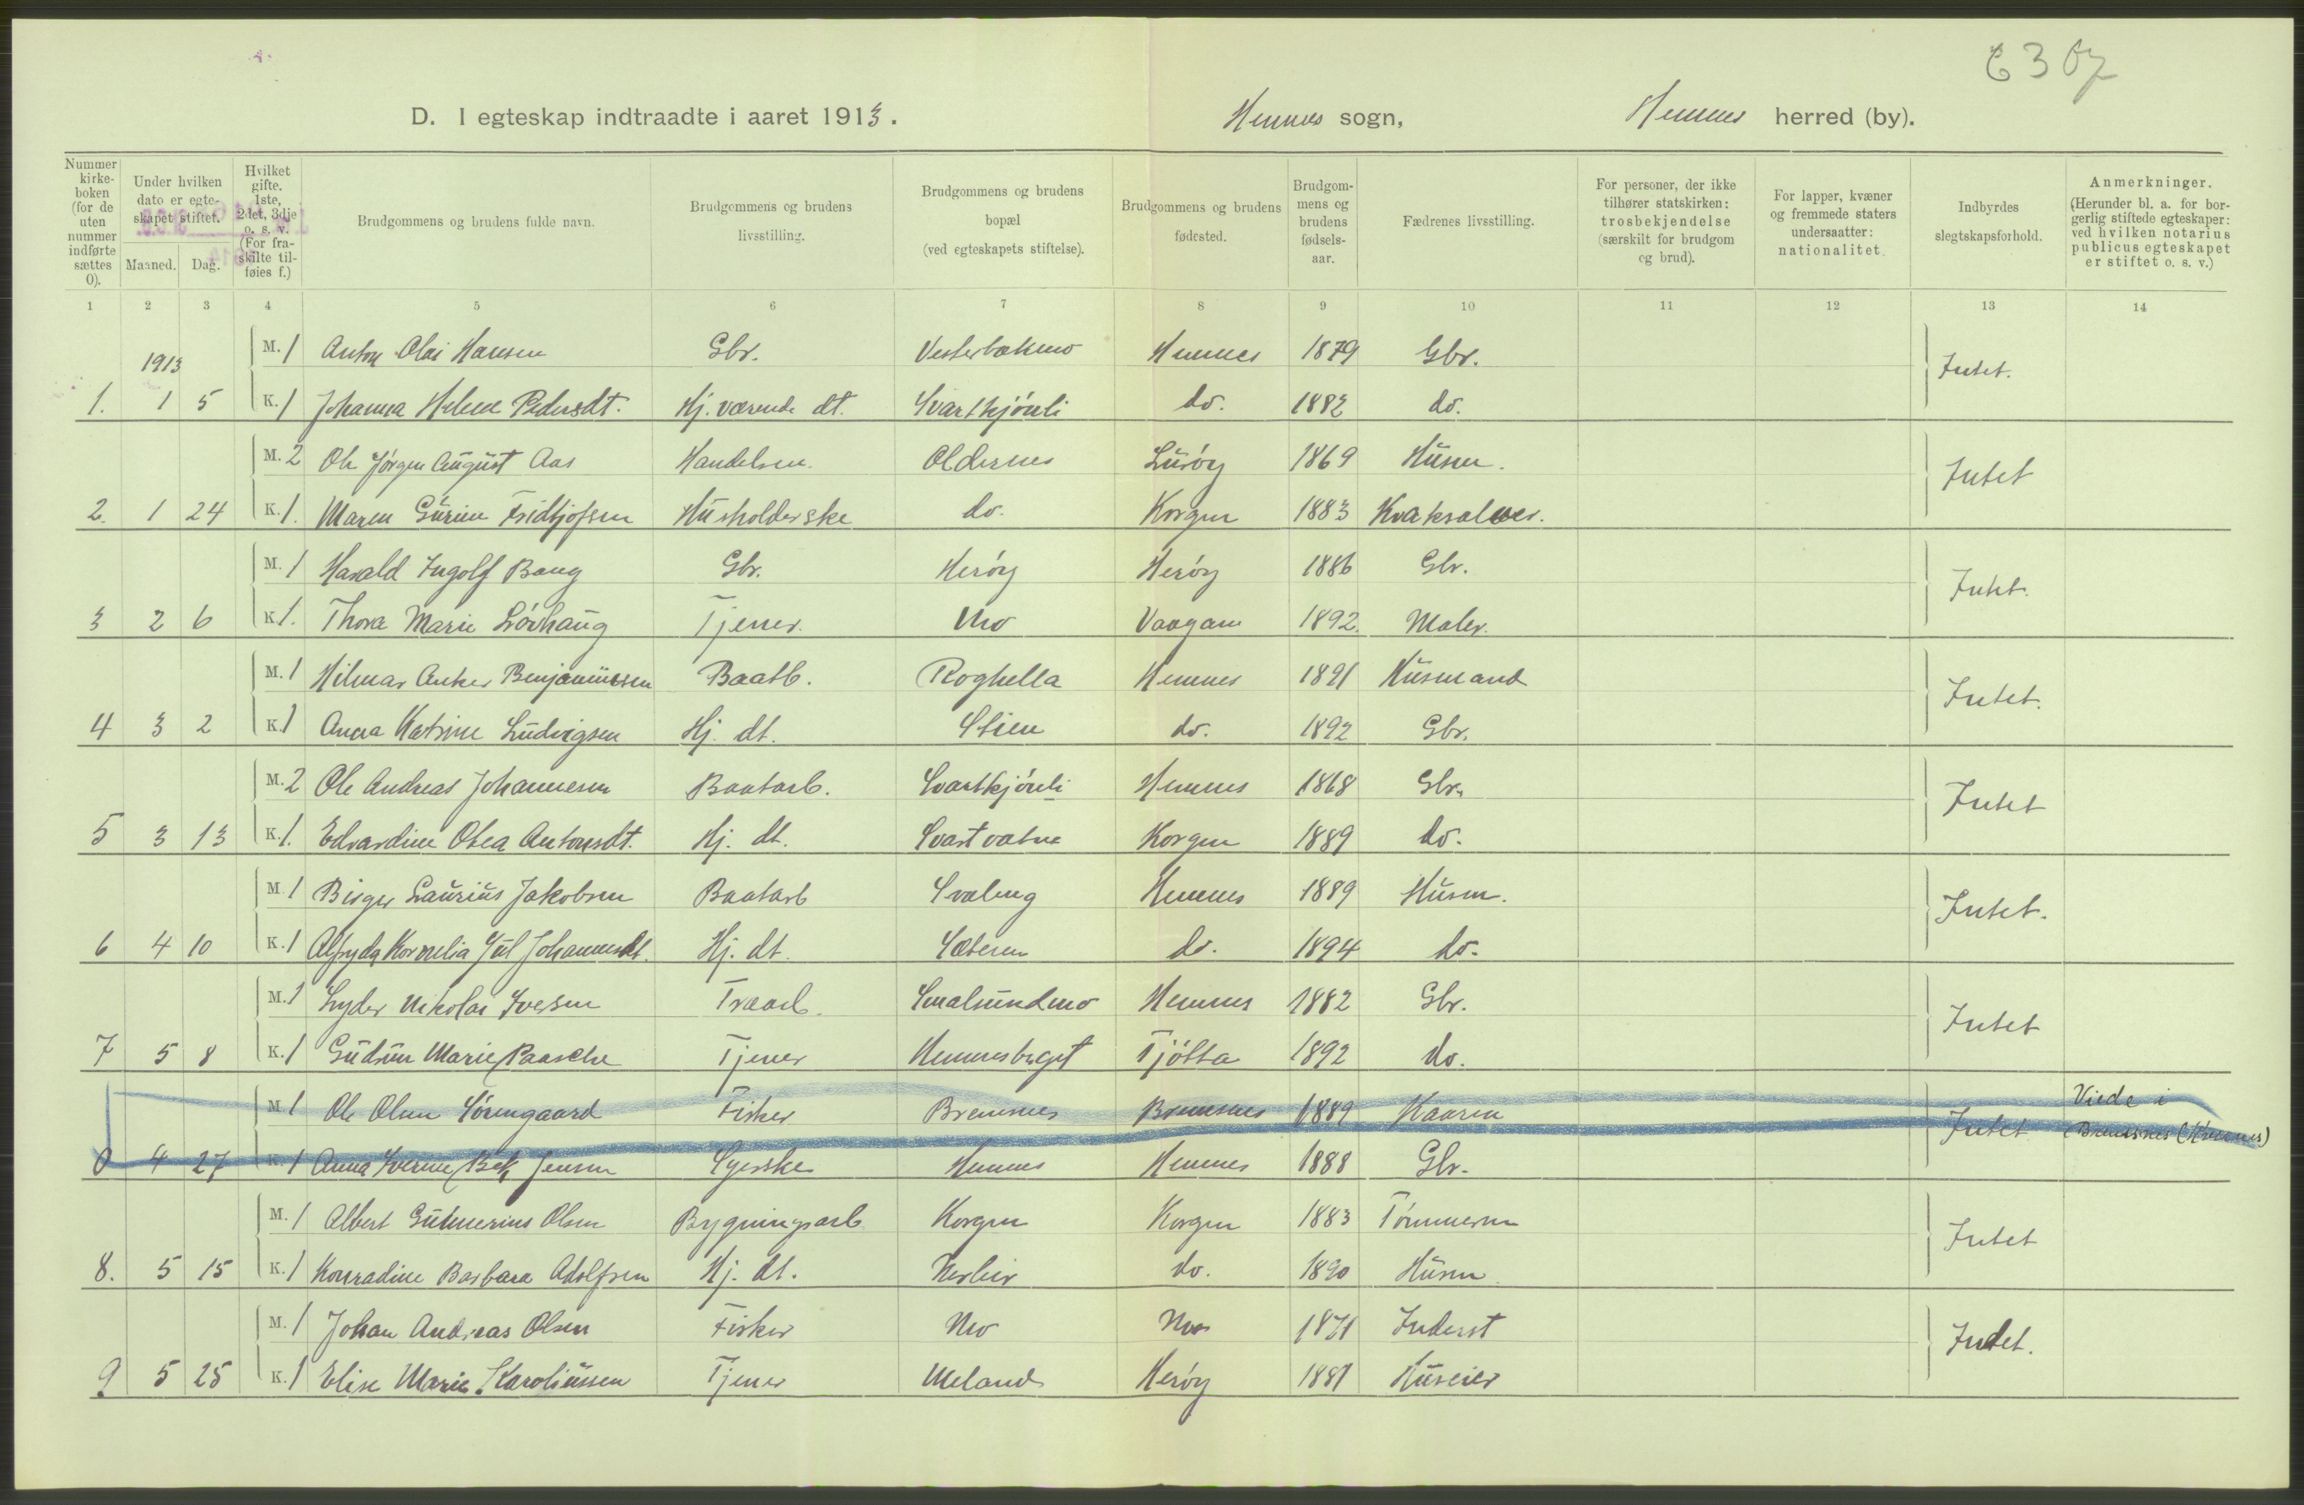 D. I egteskap indtraadte i aaret 1913. Hemnes sogn, Hemnes herred (by).
Nummer kirke-boken (for de uten nummer indførte sættes 0).
Under hvilken dato er egte-skapet stiftet.
Maaned. Dag.
Hvilket gifte. 1ste, 2det, 3dje o. s. v. (For fra-skilte til-føies f.)
Brudgommens og brudens fulde navn.
Brudgommens og brudens livsstilling.
Brudgommens og brudens bopæl (ved egteskapets stiftelse).
Brudgommens og brudens fødested.
Brudgom-mens og brudens fødsels-aar.
Fædrenes livsstilling.
For personer, der ikke tilhører statskirken: trosbekjendelse (særskilt for brudgom og brud).
For lapper, kvæner og fremmede staters undersaatter: nationalitet.
Indbyrdes slegtskapsforhold.
Anmerkninger. (Herunder bl. a. for bor-gerlig stiftede egteskaper: ved hvilken notarius publicus egteskapet er stiftet o. s. v.)
1 2 3 4 5 6 7 8 9 10 11 12 13 14
1913 M. 1 Anton Olai Hansen Gbr. Vesterbakmo Hemnes 1879 Gbr. Intet.
1. 1 5 K. 1 Johanna Helene Pedersdt. Hj. værende dt. Svartkjönli do. 1882 do.
M. 2 Ole Jørgen August Aas Handelsm. Oldernes Lurøy 1869 Husm. Intet
2. 1 24 K. 1. Maren Gurine Fridtjofsen Husholderske do. Korgen 1883 Kvaksalver.
M. 1 Harald Ingolf Bang Gbr. Herøy Herøy 1886 Gbr. Intet.
3 2 6 K. 1. Thora Marie Lövhaug Tjener. Mo Vaagan 1892. Maler.
M. 1 Hilmar Anker Benjaminsen Baatb. Roghella Hemnes 1891 Husmand Intet.
4 3 2 K. 1 Anna Katrine Ludvigsen Hj. dt. Stien do. 1892 Gbr.
M. 2 Ole Andreas Johannesen Baatarb. Svartkjönli Hemnes 1868 Gbr. Intet
5 3 13 K. 1. Edvardine Olea Antonsdt. Hj. dt. Svartvatne Korgen 1889 do.
M. 1 Birger Laurius Jakobsen Baatarb Svaleng Hemnes 1889 Husm. Intet.
6 4 10 K. 1 Alfryda Kornelia Jul Johannesdt. Hj. dt. Sæteren do. 1894 do.
M. 1 Lyder Nikolai Iversen Træarb. Smalsundmo Hemnes 1882 Gbr. Intet
7 5 8 K. 1 Gudrun Marie Paasche Tjener Hemnesberget Tjötta 1892 do.
M. 1 Ole Olsen Sörengaard Fisker Bremsnes Bremsnes 1889 Kaarm Intet Viede i
0 4 27 K. 1 Anna Iverine Bek Jensen Syerske Hemnes Hemnes 1888 Gbr. Bremsnes
M. 1 Albert Gutnerius Olsen Bygningsarb. Korgen Korgen 1883 Tömmerm Intet
8. 5 15 K. 1 Konradine Barbara Adolfsen Hj. dt. do. 1890 Husm
M. 1 Johan Andreas Olsen Fisker Mo Mo 1871 Inderst Intet.
9 5 25 K. 1 Elise Marie Karoliussen Tjener Meland Herøy 1881 Huseier